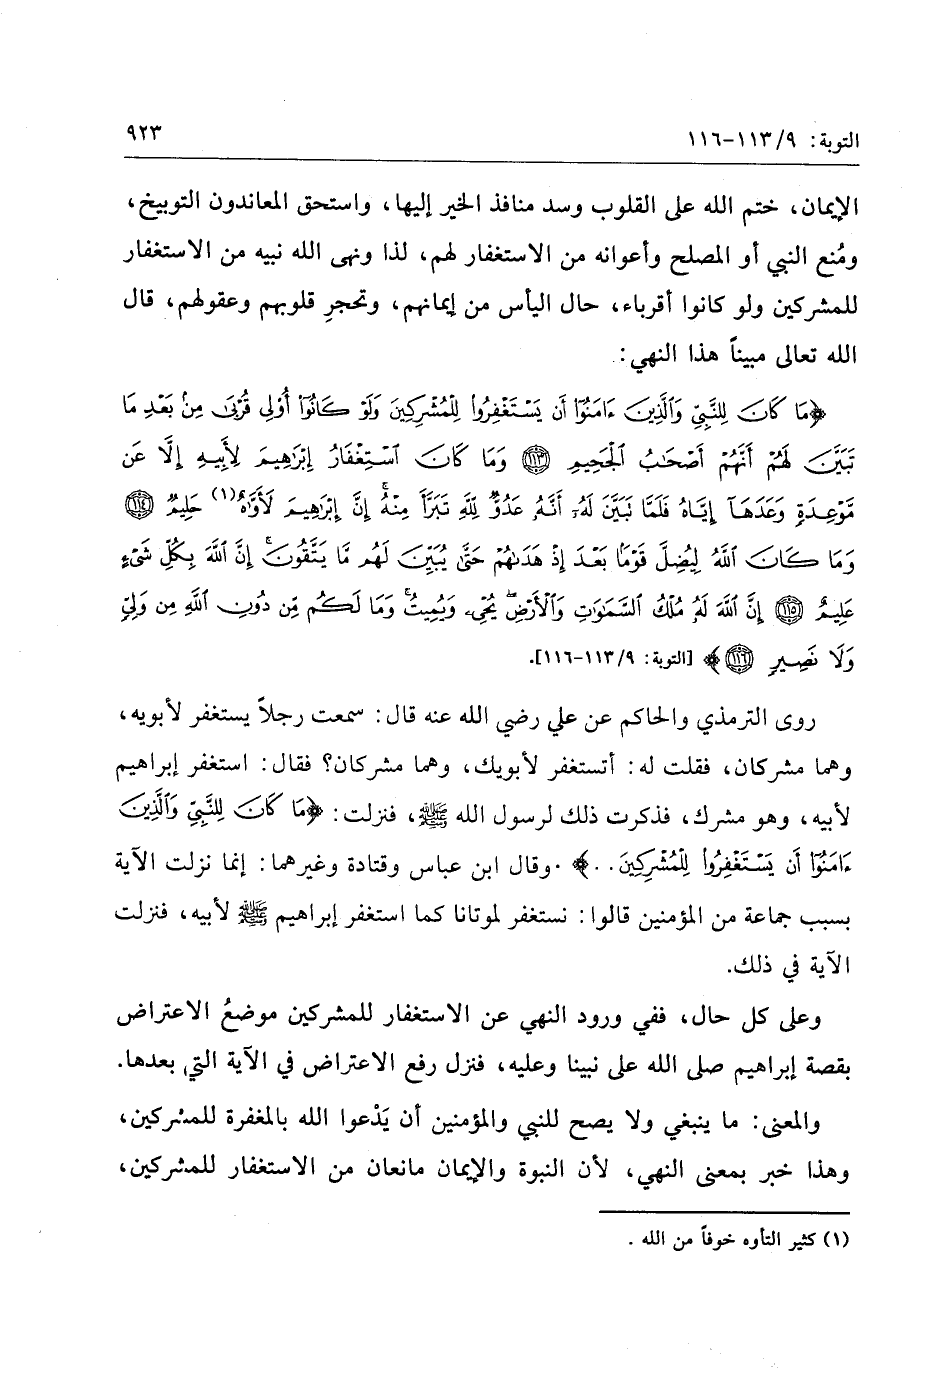 التوبة: ٩/ ١١٣-١١٦ ٩٢٣
الإيمان، ختم الله على القلوب وسد منافذ الخير إليها، واستحق المعاندون التوبيخ،
ومُنع النبي أو المصلح وأعوانه من الاستغفار لهم، لذا ونهى الله نبيه من الاستغفار
للمشركين ولو كانوا أقرباء، حال اليأس من إيمانهم، وتحجرِ قلوبهم وعقولهم، قال
الله تعالى مبيناً هذا النهي:
﴿مَا كَانَ لِلنَّبِيِّ وَٱلَّذِينَ ءَامَنُوٓا۟ أَن يَسْتَغْفِرُوا۟ لِلْمُشْرِكِينَ وَلَوْ كَانُوٓا۟ أُو۟لِى قُرْبَىٰ مِنۢ بَعْدِ مَا
تَبَيَّنَ لَهُمْ أَنَّهُمْ أَصْحَٰبُ ٱلْجَحِيمِ ١١٣ وَمَا كَانَ ٱسْتِغْفَارُ إِبْرَٰهِيمَ لِأَبِيهِ إِلَّا عَن
مَّوْعِدَةٍ وَعَدَهَآ إِيَّاهُ فَلَمَّا تَبَيَّنَ لَهُۥٓ أَنَّهُۥ عَدُوٌّ لِّلَّهِ تَبَرَّأَ مِنْهُ ۚ إِنَّ إِبْرَٰهِيمَ لَأَوَّٰهٌ(١) حَلِيمٌ ١١٤
وَمَا كَانَ ٱللَّهُ لِيُضِلَّ قَوْمًۢا بَعْدَ إِذْ هَدَىٰهُمْ حَتَّىٰ يُبَيِّنَ لَهُم مَّا يَتَّقُونَ ۚ إِنَّ ٱللَّهَ بِكُلِّ شَىْءٍ
عَلِيمٌ ١١٥ إِنَّ ٱللَّهَ لَهُۥ مُلْكُ ٱلسَّمَٰوَٰتِ وَٱلْأَرْضِ ۖ يُحْىِۦ وَيُمِيتُ ۚ وَمَا لَكُم مِّن دُونِ ٱللَّهِ مِن وَلِىٍّ
وَلَا نَصِيرٍ ١١٦﴾ [التوبة: ٩/ ١١٣-١١٦].
روى الترمذي والحاكم عن علي رضي الله عنه قال: سمعت رجلاً يستغفر لأبويه،
وهما مشركان، فقلت له: أتستغفر لأبويك، وهما مشركان؟ فقال: استغفر إبراهيم
لأبيه، وهو مشرك، فذكرت ذلك لرسول الله ﷺ، فنزلت: ﴿مَا كَانَ لِلنَّبِيِّ وَٱلَّذِينَ
ءَامَنُوٓا۟ أَن يَسْتَغْفِرُوا۟ لِلْمُشْرِكِينَ..﴾. وقال ابن عباس وقتادة وغيرهما: إنما نزلت الآية
بسبب جماعة من المؤمنين قالوا: نستغفر لموتانا كما استغفر إبراهيم ﷺ لأبيه، فنزلت
الآية في ذلك.
وعلى كل حال، ففي ورود النهي عن الاستغفار للمشركين موضعُ الاعتراض
بقصة إبراهيم صلى الله على نبينا وعليه، فنزل رفع الاعتراض في الآية التي بعدها.
والمعنى: ما ينبغي ولا يصح للنبي والمؤمنين أن يَدْعوا الله بالمغفرة للمشركين،
وهذا خبر بمعنى النهي، لأن النبوة والإيمان مانعان من الاستغفار للمشركين،
(١) كثير التأوه خوفاً من الله .